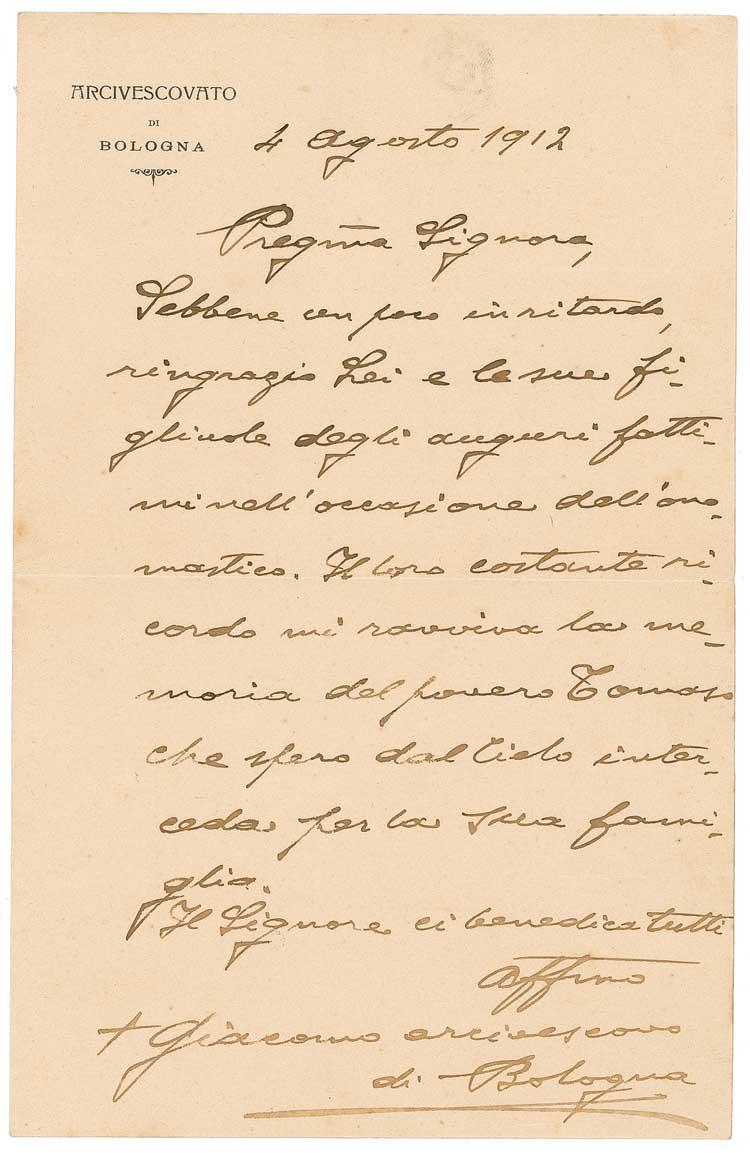 ARCIVESCOVATO
DI
BOLOGNA
4 agosto 1912
Pregma Signora,
Sebbene un poco in ritardo,
ringrazio Lei e le sue fi-
gliuole degli auguri fatti-
mi nell'occasione dell'ono-
mastico. Il loro costante ri-
cordo mi ravviva la me-
moria del povero Tomaso
che spero dal Cielo inter-
ceda per la Sua fami-
glia.
Il Signore ci benedica tutti
Affmo
+ Giacomo arcivescovo
di Bologna